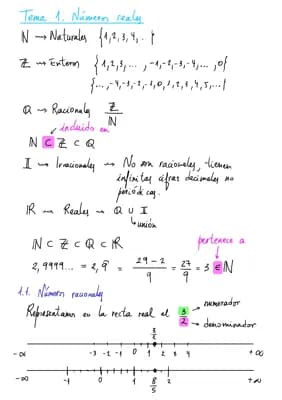 Tema 1. Números reales
N → Naturales {1,2,3,4,..}
Z → Enteros {1,2,3,..., -1,-2,-3,-4,..., 0}
{...,-4,-3,-2,-1,0,1,2,3,4,5,...}
Q → Racionales Z/N
incluido en
N ⊂ Z ⊂ Q
I → Irracionales → No son racionales, tienen
infinitas cifras decimales no
periódicas.
R → Reales → Q ∪ I
unión
N ⊂ Z ⊂ Q ⊂ R
pertenece a
2,9999... = 2,9̂ = (29-2)/9 = 27/9 = 3 ∈ N
1.1. Números racionales
Representamos en la recta real el 3/2 → numerador
→ denominador
3/2
-∞ -3 -2 -1 0 1 2 3 4 +∞
-∞ -1 0 1 8/5 2 +∞